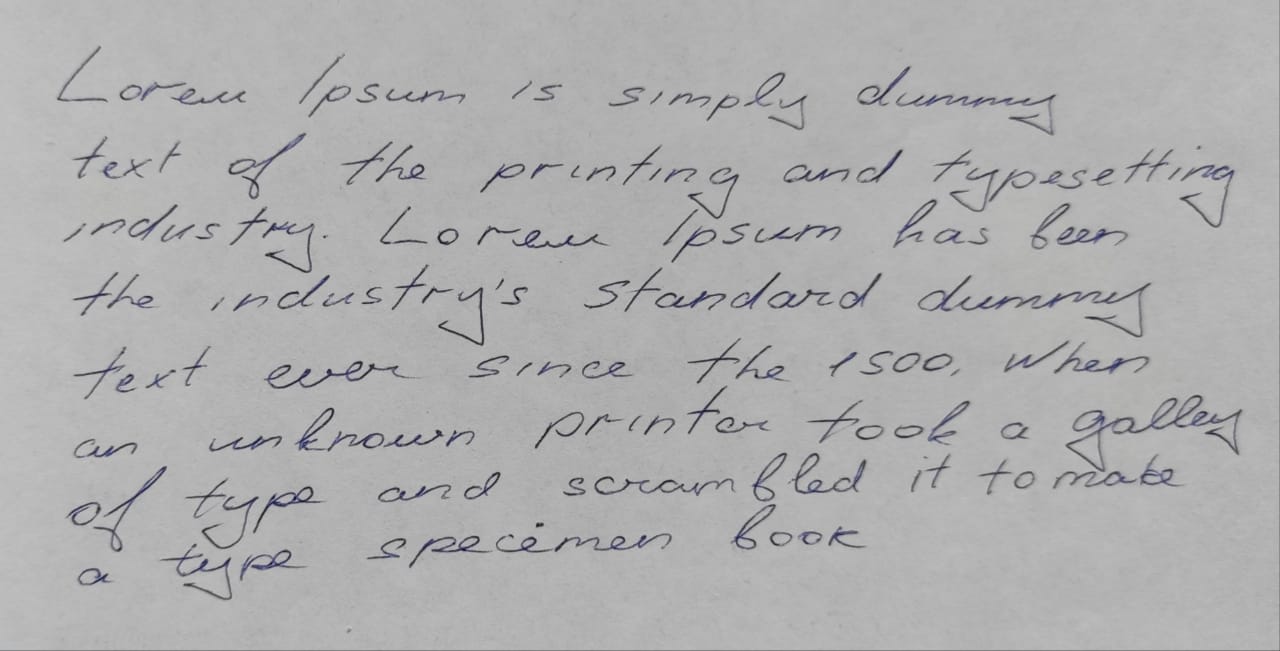 Lorem Ipsum is simply dummy
text of the printing and typesetting
industry. Lorem Ipsum has been
the industry's standard dummy
text ever since the 1500, when
an unknown printer took a galley
of type and scrambled it to make
a type specimen book